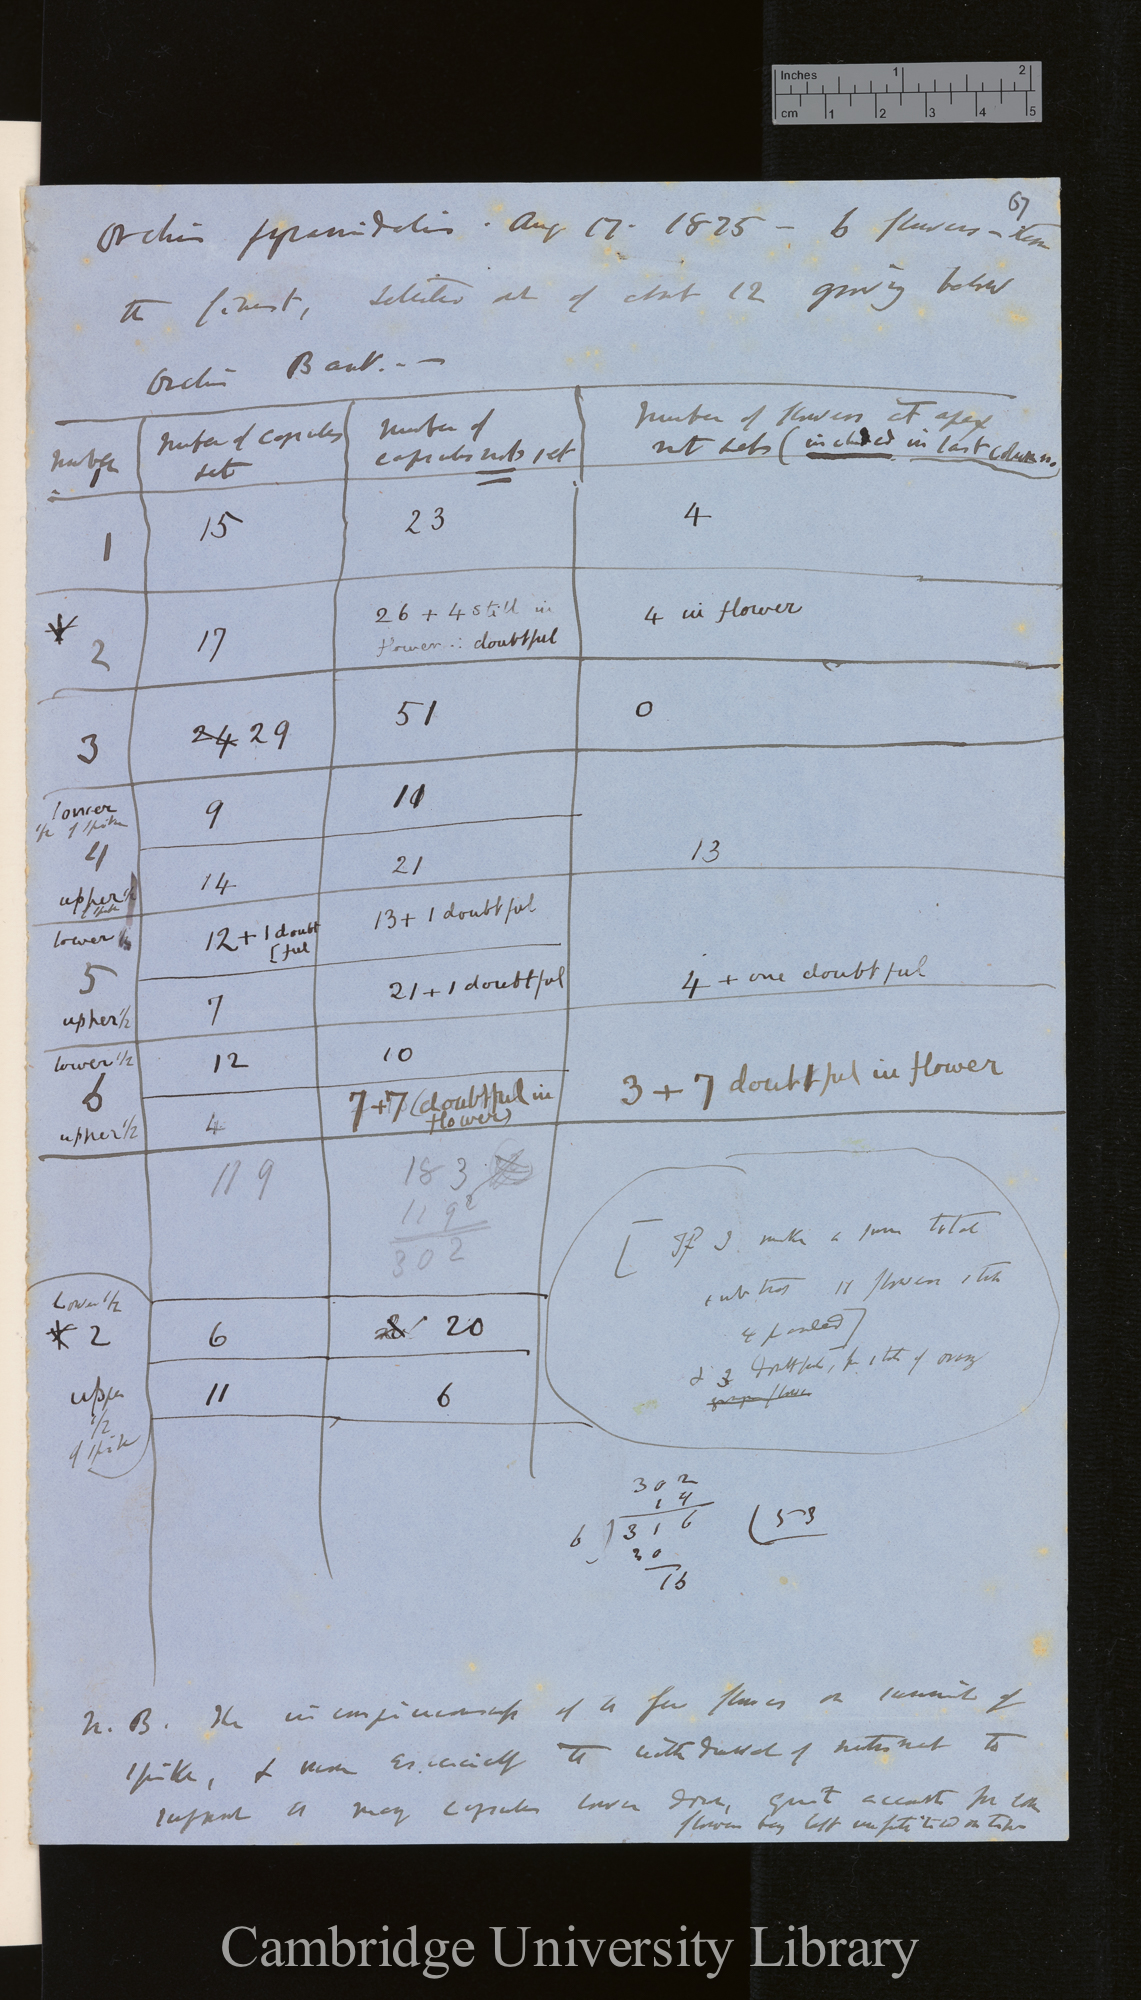 Inches 1 2
cm 1 2 3 4 5
67
Orchis pyramidalis. Aug 17. 1875 — 6 flower-stem
the finest, selected out of about 12 growing below
Orchis Bank. —
Number
Number of capsules set
Number of capsules not set
Number of flowers at apex not sets (included in last column.
1 15 23 4
* 2 17 26 + 4 still in flower ∴ doubtful 4 in flower
3 24 29 51 0
lower 1/2 of spike 9 11
4
upper 1/2 of spike 14 21 13
lower 1/2 12 + 1 doubt [ful 13 + 1 doubtful
5
upper 1/2 7 21 + 1 doubtful 4 + one doubtful
lower 1/2 12 10
6
upper 1/2 4 7 + 7 (doubtful in flower) 3 + 7 doubtful in flower
119 183
119
302
[If I make a sum total
subtract 11 flowers
]
& 3 doubtful, for state of
Lower 1/2
* 2 6 20
upper 1/2 of spike 11 6
302
14
6 ) 316 ( 53
30
16
N. B. The inconspicuousness of a few flowers on summit of
spike, & more especially the withdrawal of nutriment to
support a many capsules lower down, quite accounts for
flowers being left unfertilised on
Cambridge University Library